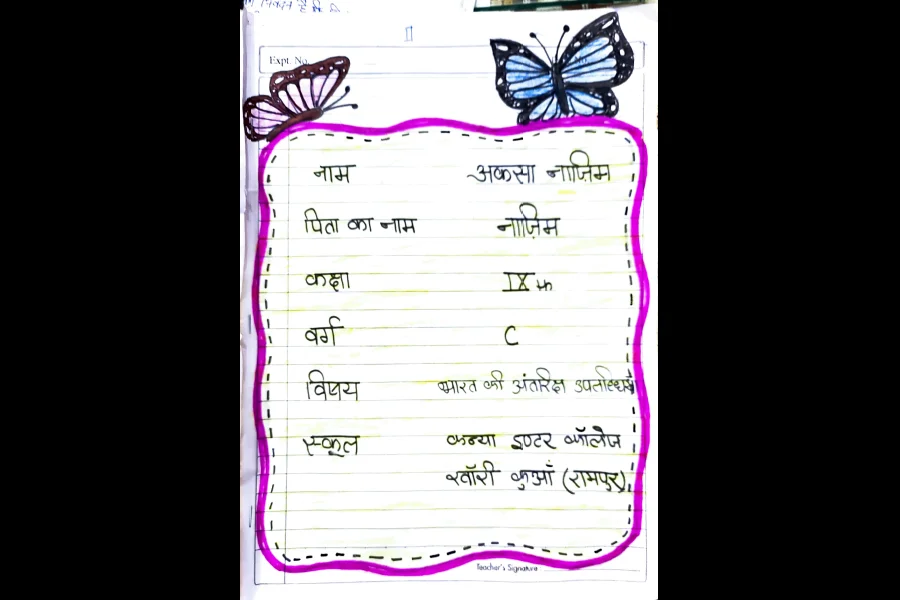 Expt. No.
No.
नाम अकसा नाज़िम
पिता का नाम नाज़िम
कक्षा IX th
वर्ग C
विषय भारत की अंतरिक्ष उपलब्धियाँ
स्कूल कन्या इण्टर कॉलेज
खॉरी कुआँ (रामपुर)
Teacher's Signature